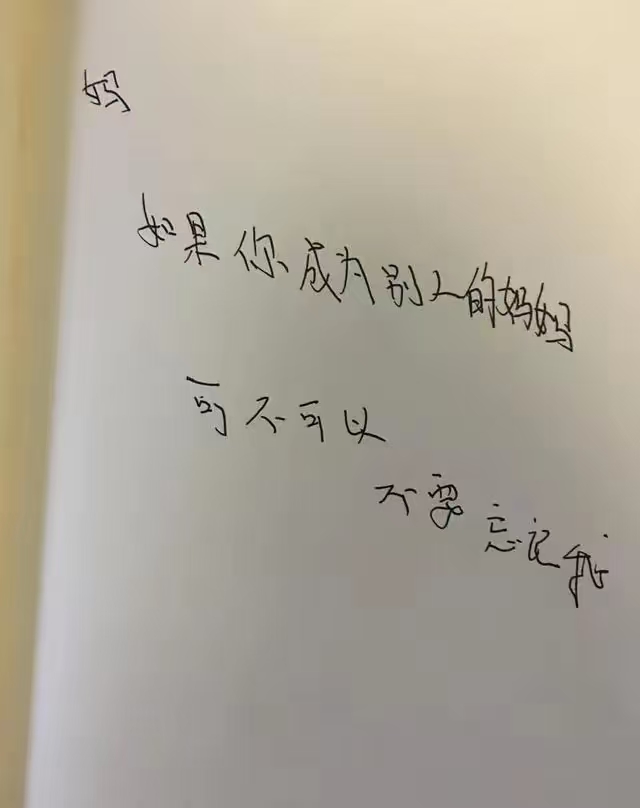 妈
如果你成为别人的妈妈
可不可以
不要忘记我